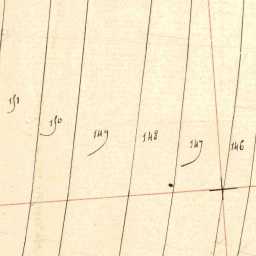 151
150
149
148
147
146